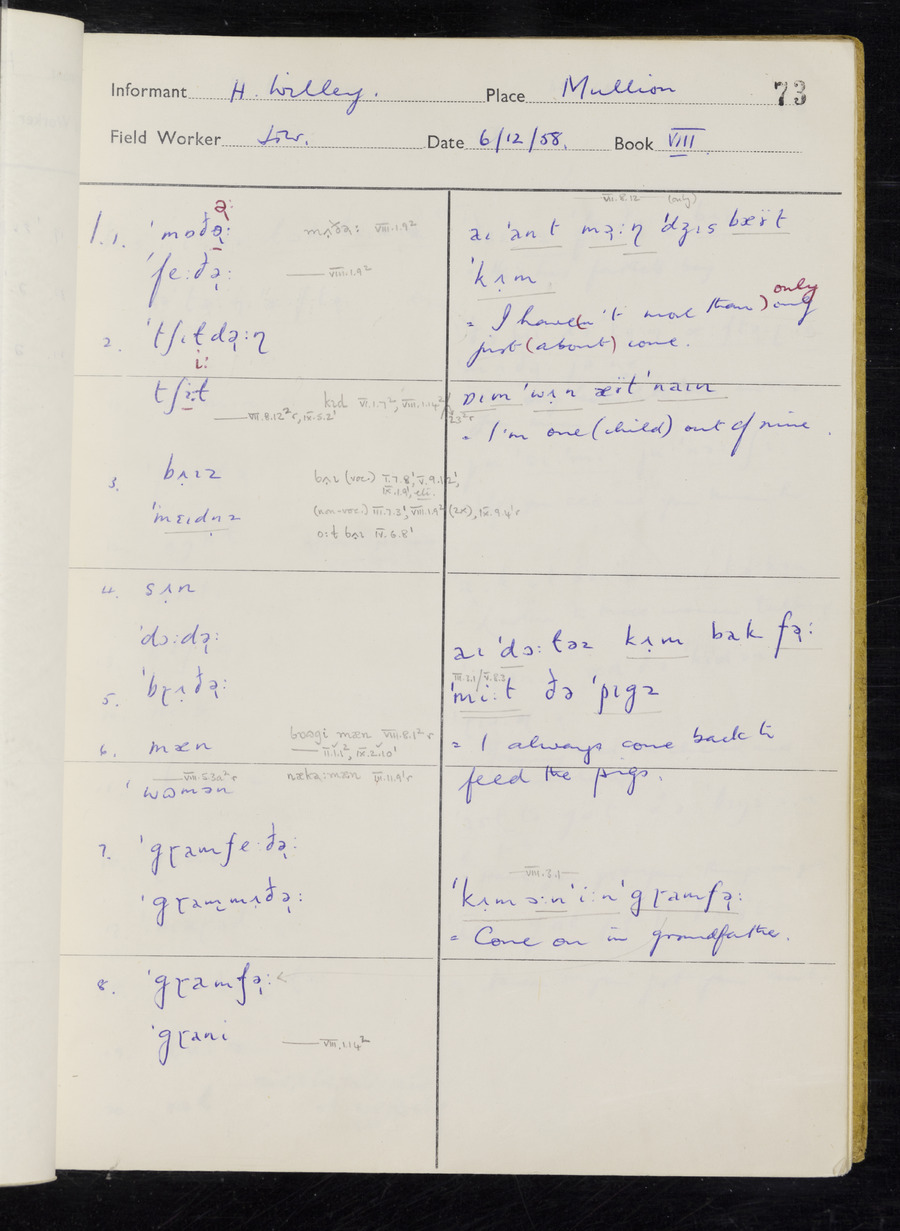 Informant H. Willey. Place Mullion 73
Field Worker J.T.W. Date 6/12/58. Book VIII
1. 1. ˈmɒðə̣:
ə̣:
mʌ̣ðə: VIII.1.9²
ˈfe:ðə̣:
VIII.1.9²
2. ˈtʃɪḷdə̣:n
i:
tʃi:t
VII.8.12²r, IX.5.2ˈ
kɪd VI.1.7², VIII.1.14²/
3. bʌ̣ɪz
bʌ̣ɪ (voc.) I.7.8ˈ, V.9.12ˈ,
IX.1.9ˈ, etc.
ˈmɛɪdṇz
(non-voc.) III.7.3ˈ, VIII.1.9² (2x), IX.9.4ˈr
o:t bʌɪ IV.6.8ˈ
4. sʌ̣n
ˈdɔ:də̣:
5. ˈbɽʌ̣ðə̣:
6. mæn
VIII.8.1²r
II.1.1², IX.2.10ˈ
VIII.5.3a²r
VI.11.9ˈr
ˈwʊmən
7. ˈgɽamfe:ðə̣:
ˈgɽammʌ̣ðə̣:
8. ˈgɽamfə̣: <
ˈgɽani
VIII.1.14²
VII.8.12 (only)
aɪ ˈant mə̣:ɳ ˈdʒɪs bæït
ˈkʌ̣m
= I have(n't more than) only
just (about) come.
ɒɪm ˈwʌ̣n æït ˈnaɪn
= I'm one (child) out of nine.
aɪ ˈdɔ:təz kʌ̣m bak fə̣:
III.3.1/V.8.2
ˈmi:t ðə ˈpɪgz
= I always come back to
feed the pigs.
VIII.3.1
ˈkʌ̣m ɔ:n ˈi:n ˈgɽamfə̣:
= Come on in grandfather.